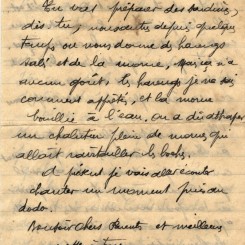 Tu vas préparer des sardines,
dis-tu, nous autres depuis quelque
temps on nous donne du hareng
salé et de la morue, mais ça n'a
aucun goût, le hareng je ne sais
comment apprêté, et la morue
bouillie à l'eau, on a dû attraper
un chalutier plein de morue, qui
allait ravitailler les boches.
A présent je vais aller écouter
chanter un moment puis au
dodo.
Bonsoir chers Parents et meilleurs